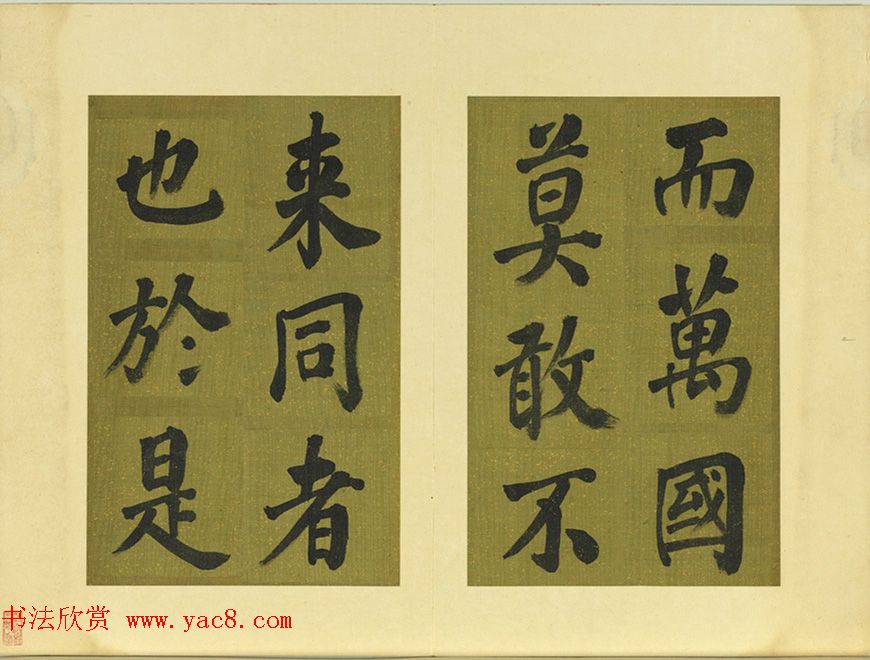 而萬國
莫敢不
来同者
也於是
书法欣赏 www.yac8.com